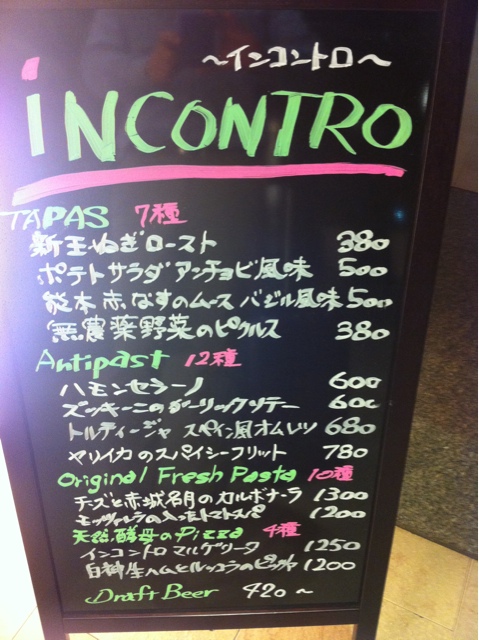 ～インコントロ～
iNCONTRO
TAPAS 7種
新玉ねぎロースト 380
ポテトサラダ アンチョビ風味 500
熊本赤なすのムース バジル風味 500
無農薬野菜のピクルス 380
Antipast 12種
ハモンセラーノ 600
ズッキーニのガーリックソテー 600
トルティージャ スペイン風オムレツ 680
ヤリイカのスパイシーフリット 780
Original Fresh Pasta 10種
チーズと赤城名月のカルボナーラ 1300
モッツァレラの入ったトマトスパ 1200
天然酵母のPizza 4種
インコントロマルゲリータ 1250
白神生ハムとルッコラのピッツァ 1200
Draft Beer 420～